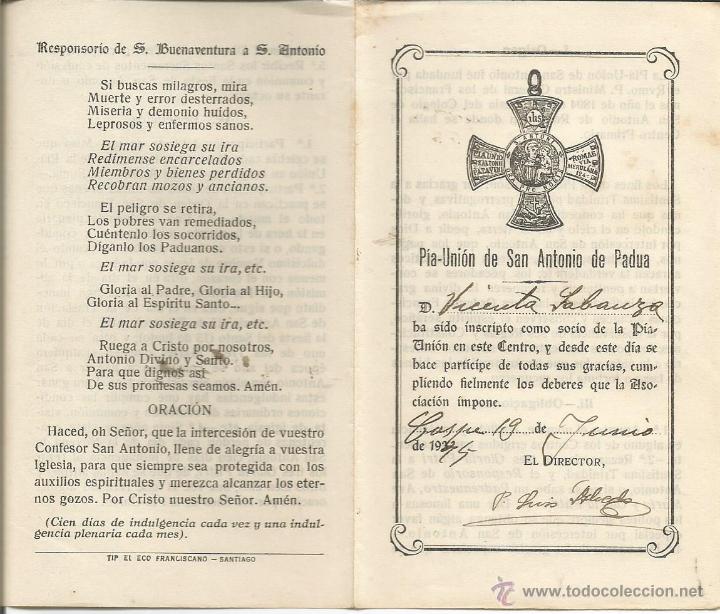 Responsorio de S. Buenaventura a S. Antonio
Si buscas milagros, mira
Muerte y error desterrados,
Miseria y demonio huídos,
Leprosos y enfermos sanos.
El mar sosiega su ira
Redímense encarcelados
Miembros y bienes perdidos
Recobran mozos y ancianos.
El peligro se retira,
Los pobres van remediados,
Cuéntenlo los socorridos,
Díganlo los Paduanos.
El mar sosiega su ira, etc.
Gloria al Padre, Gloria al Hijo,
Gloria al Espíritu Santo...
El mar sosiega su ira, etc.
Ruega a Cristo por nosotros,
Antonio Divino y Santo.
Para que dignos así
De sus promesas seamos. Amén.
ORACIÓN
Haced, oh Señor, que la intercesión de vuestro
Confesor San Antonio, llene de alegría a vuestra
Iglesia, para que siempre sea protegida con los
auxilios espirituales y merezca alcanzar los eter-
nos gozos. Por Cristo nuestro Señor. Amén.
(Cien días de indulgencia cada vez y una indul-
gencia plenaria cada mes).
TIP EL ECO FRANCISCANO — SANTIAGO
Pía-Unión de San Antonio de Padua
D. Vicenta Labanza
ha sido inscripto como socio de la Pía-
Unión en este Centro, y desde este día se
hace partícipe de todas sus gracias, cum-
pliendo fielmente los deberes que la Aso-
ciación impone.
Caspe 19 de Junio
de 19
EL DIRECTOR,
P. Luis
www.todocoleccion.net